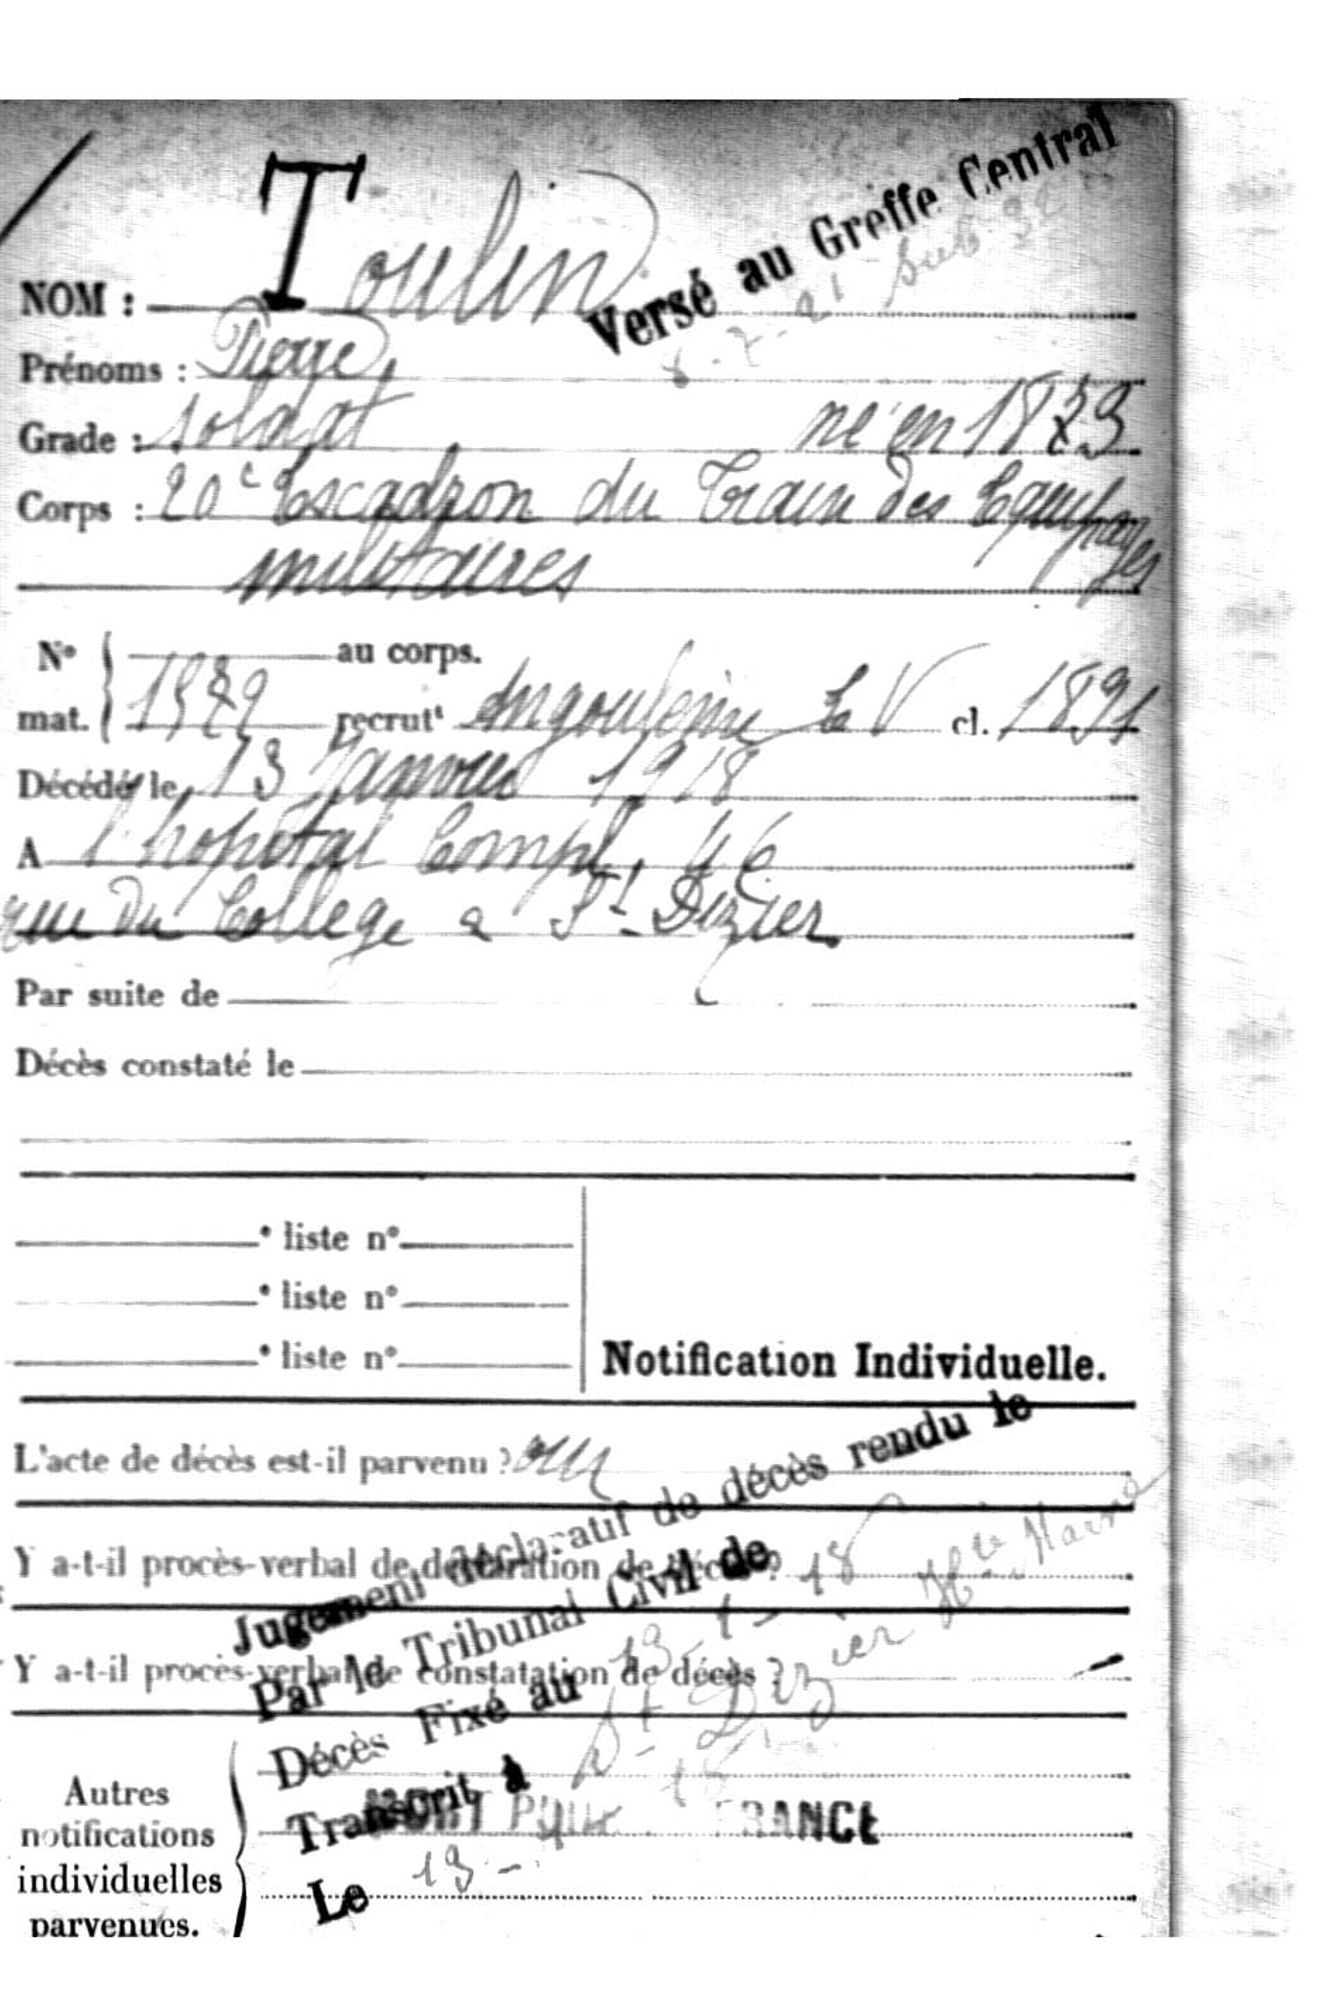 Versé au Greffe Central
NOM : Toulin
8-7-21 Sub 32
Prénoms : Pierre,
Grade : soldat né en 1873
Corps : 20e Escadron du Train des Equipages
militaires
No au corps.
mat. recrutt Angoulème cl. 1891
Décédé le 13 Janvier 1918
A l'hopital Compl. 46
rue du College a St Dizier
Par suite de
Décès constaté le
e liste no
e liste no
e liste no
Notification Individuelle.
L'acte de décès est-il parvenu ? oui
Y a-t-il procès-verbal de déclaration de décès ?
Y a-t-il procès-verbal de constatation de décès ?
Jugement déclaratif de décès rendu le
Par le Tribunal Civil de
Décès Fixé au 13-1-18
Transcrit à St Dizier Hte Marne
MORT POUR FRANCE
Le 13-
Autres
notifications
individuelles
parvenues.